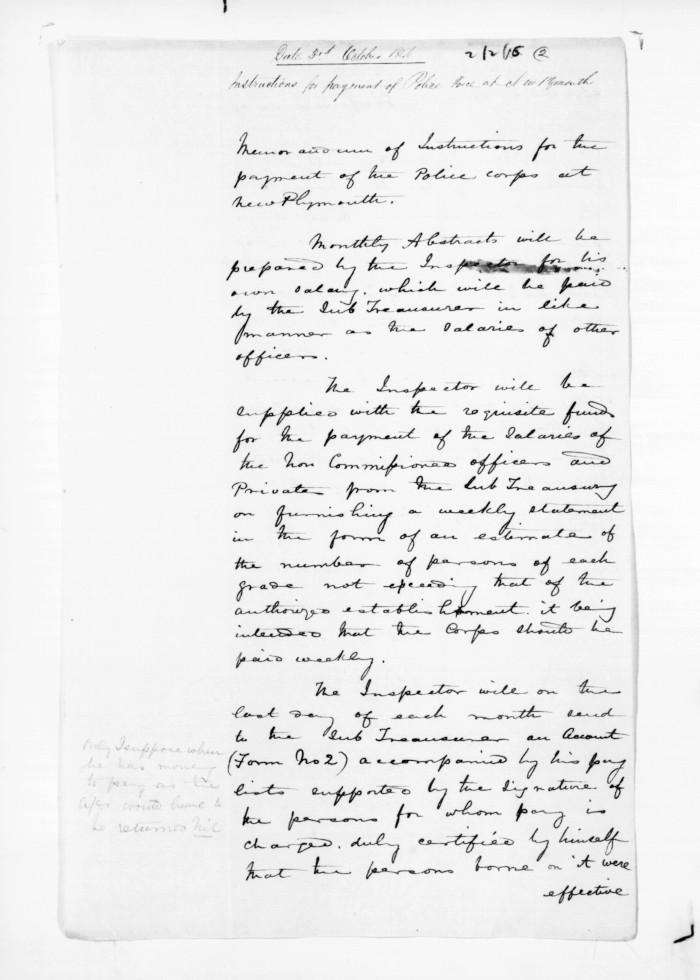 Date 3rd October
2/2/15 (2)
Instructions for payment of Police Force at New Plymouth
Memorandum of Instructions for the
payment of the Police Corps at
New Plymouth.
Monthly Abstracts will be
prepared by the Inspector for his
own salary. which will be paid
by the Sub Treasurer in like
manner as the Salaries of other
officers.
The Inspector will be
supplied with the requisite funds
for the payment of the Salaries of
the Non Commissioned officers and
Privates from the Sub Treasury
on furnishing a weekly statement
in the form of an estimate of
the number of persons of each
grade not exceeding that of the
authorized establishment. it being
intended that the Corps should be
paid weekly.
The Inspector will on the
last day of each month send
to the Sub Treasurer an Account
(Form No 2) accompanied by his pay
lists supported by the Signature of
the persons for whom pay is
charged. duly certified by himself
that the persons borne on it were
effective
Only I suppose when
he has money
to pay as the
would have to
be returned Nil